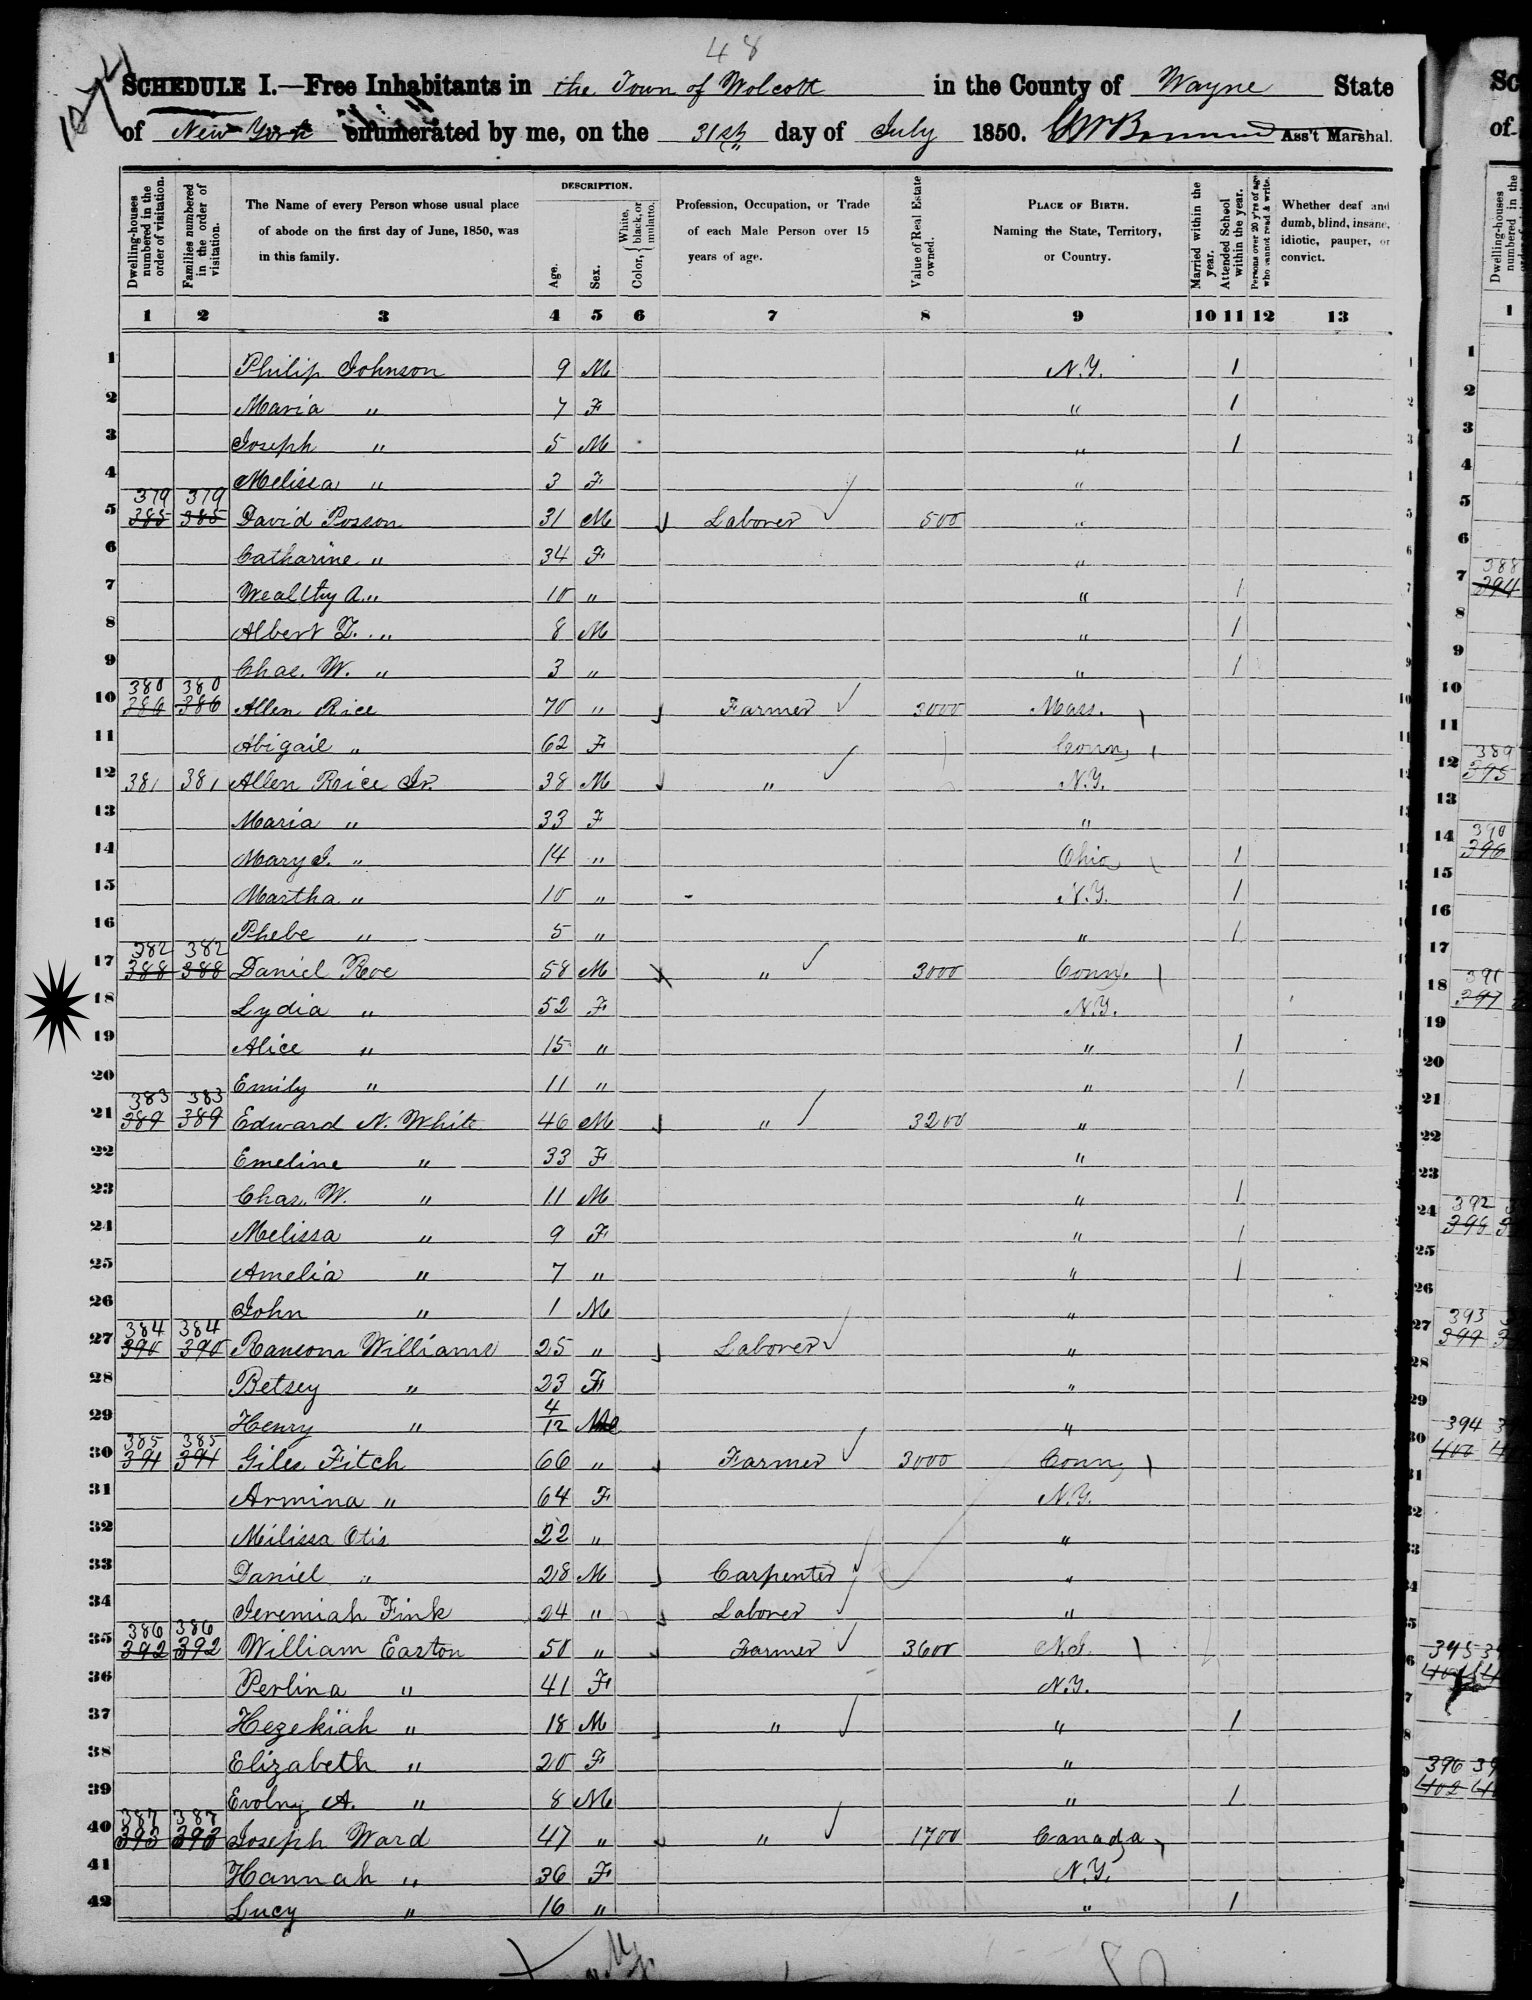 48
SCHEDULE I.—Free Inhabitants in the Town of Wolcott in the County of Wayne State
of New York enumerated by me, on the 31st day of July 1850. Ass't Marshal.
Dwelling-houses numbered in the order of visitation.
Families numbered in the order of visitation.
The Name of every Person whose usual place of abode on the first day of June, 1850, was in this family.
DESCRIPTION.
Age.
Sex.
Color, { White, black, or mulatto.
Profession, Occupation, or Trade of each Male Person over 15 years of age.
Value of Real Estate owned.
PLACE OF BIRTH. Naming the State, Territory, or Country.
Married within the year.
Attended School within the year.
Persons over 20 y'rs of age who cannot read & write.
Whether deaf and dumb, blind, insane, idiotic, pauper, or convict.
1 2 3 4 5 6 7 8 9 10 11 12 13
1 Philip Johnson 9 M N.Y. 1
2 Maria " 7 F " 1
3 Joseph " 5 M " 1
4 Melissa " 3 F "
379 379
5 385 385 David Posson 31 M Laborer 500 "
6 Catharine " 34 F "
7 Wealthy A. " 10 " " 1
8 Albert Z. " 8 M " 1
9 Chas. W. " 3 " " 1
380 380
10 386 386 Allen Rice 70 " Farmer 3000 Mass.
11 Abigail " 62 F Conn.
12 381 381 Allen Rice Jr. 38 M " N.Y.
13 Maria " 33 F "
14 Mary J. " 14 " Ohio 1
15 Martha " 10 " N.Y. 1
16 Phebe " 5 " " 1
382 382
17 388 388 Daniel Roe 58 M " 3000 Conn.
18 Lydia " 52 F N.Y.
19 Alice " 15 " " 1
20 Emily " 11 " " 1
383 383
21 389 389 Edward N. White 46 M " 3200 "
22 Emeline " 33 F "
23 Chas. W. " 11 M " 1
24 Melissa " 9 F " 1
25 Amelia " 7 " " 1
26 John " 1 M "
384 384
27 390 390 Ransom Williams 25 " Laborer "
28 Betsey " 23 F "
29 Henry " 4/12 M "
385 385
30 391 391 Giles Fitch 66 " Farmer 3000 Conn.
31 Armina " 64 F N.Y.
32 Milissa Otis 22 " "
33 Daniel " 28 M Carpenter "
34 Jeremiah Fink 24 " Laborer "
386 386
35 392 392 William Easton 50 " Farmer 3600 N.J.
36 Perlina " 41 F N.Y.
37 Hezekiah " 18 M " " 1
38 Elizabeth " 20 F "
39 Evolny A. " 8 M " 1
387 387
40 393 393 Joseph Ward 47 " " 1700 Canada
41 Hannah " 36 F N.Y.
42 Lucy " 16 " " 1